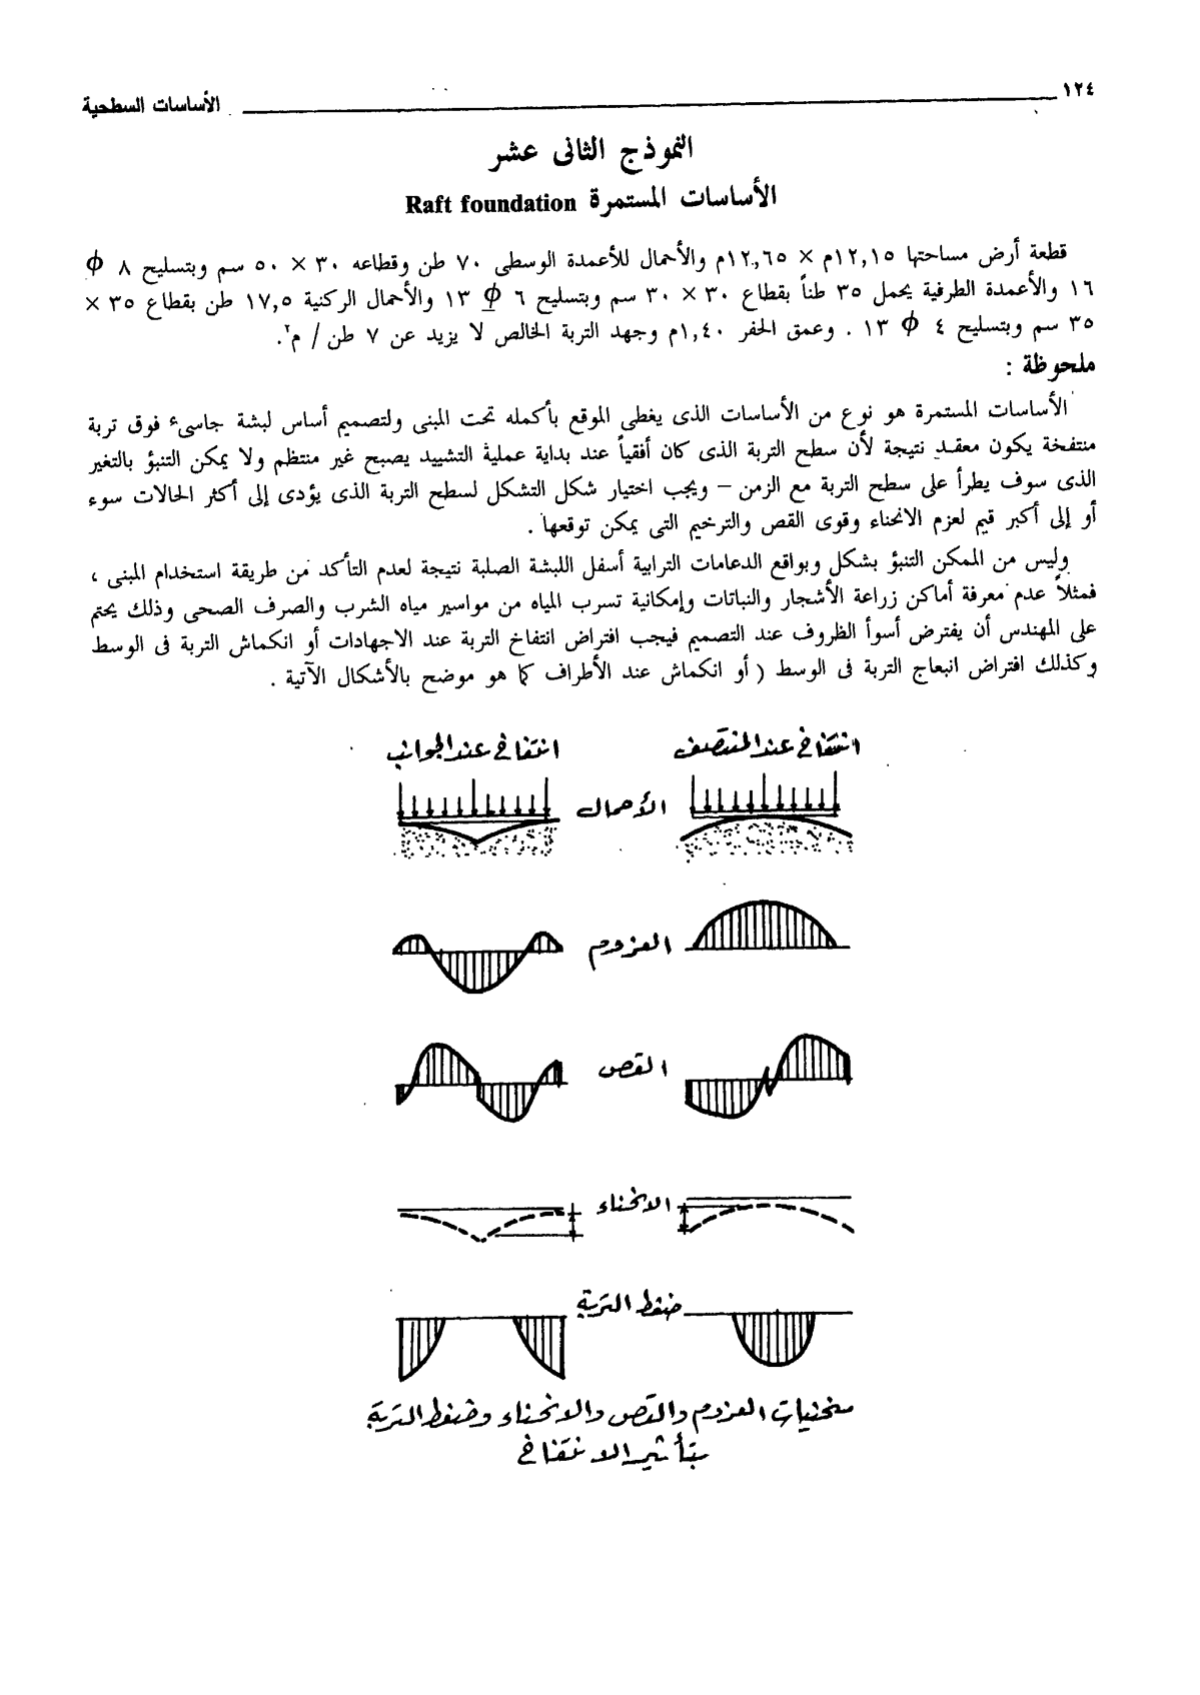 ١٢٤
الأساسات السطحية
النموذج الثانى عشر
الأساسات المستمرة Raft foundation
قطعة أرض مساحتها ١٢,١٥م × ١٢,٦٥م والأحمال للأعمدة الوسطى ٧٠ طن وقطاعه ٣٠ × ٥٠ سم وبتسليح ٨ ϕ
١٦ والأعمدة الطرفية يحمل ٣٥ طناً بقطاع ٣٠ × ٣٠ سم وبتسليح ٦ ϕ ١٣ والأحمال الركنية ١٧,٥ طن بقطاع ٣٥ ×
٣٥ سم وبتسليح ٤ ϕ ١٣ . وعمق الحفر ١,٤٠م وجهد التربة الخالص لا يزيد عن ٧ طن / م٢.
ملحوظة :
الأساسات المستمرة هو نوع من الأساسات الذى يغطى الموقع بأكمله تحت المبنى ولتصميم أساس لبشة جاسىء فوق تربة
منتفخة يكون معقد نتيجة لأن سطح التربة الذى كان أفقياً عند بداية عملية التشييد يصبح غير منتظم ولا يمكن التنبؤ بالتغير
الذى سوف يطرأ على سطح التربة مع الزمن – ويجب اختيار شكل التشكل لسطح التربة الذى يؤدى إلى أكثر الحالات سوء
أو إلى أكبر قيم لعزم الانحناء وقوى القص والترخيم التى يمكن توقعها .
وليس من الممكن التنبؤ بشكل وبواقع الدعامات الترابية أسفل اللبشة الصلبة نتيجة لعدم التأكد من طريقة استخدام المبنى ،
فمثلاً عدم معرفة أماكن زراعة الأشجار والنباتات وإمكانية تسرب المياه من مواسير مياه الشرب والصرف الصحى وذلك يحتم
على المهندس أن يفترض أسوأ الظروف عند التصميم فيجب افتراض انتفاخ التربة عند الاجهادات أو انكماش التربة فى الوسط
وكذلك افتراض انبعاج التربة فى الوسط ( أو انكماش عند الأطراف كما هو موضح بالأشكال الآتية .
انتفاخ عند المنتصف
انتفاخ عند الجوانب
الأحمال
العزوم
القص
الانحناء
ضغط التربة
منحنيات العزوم والقص والانحناء وضغط التربة
بتأثير الانتفاخ